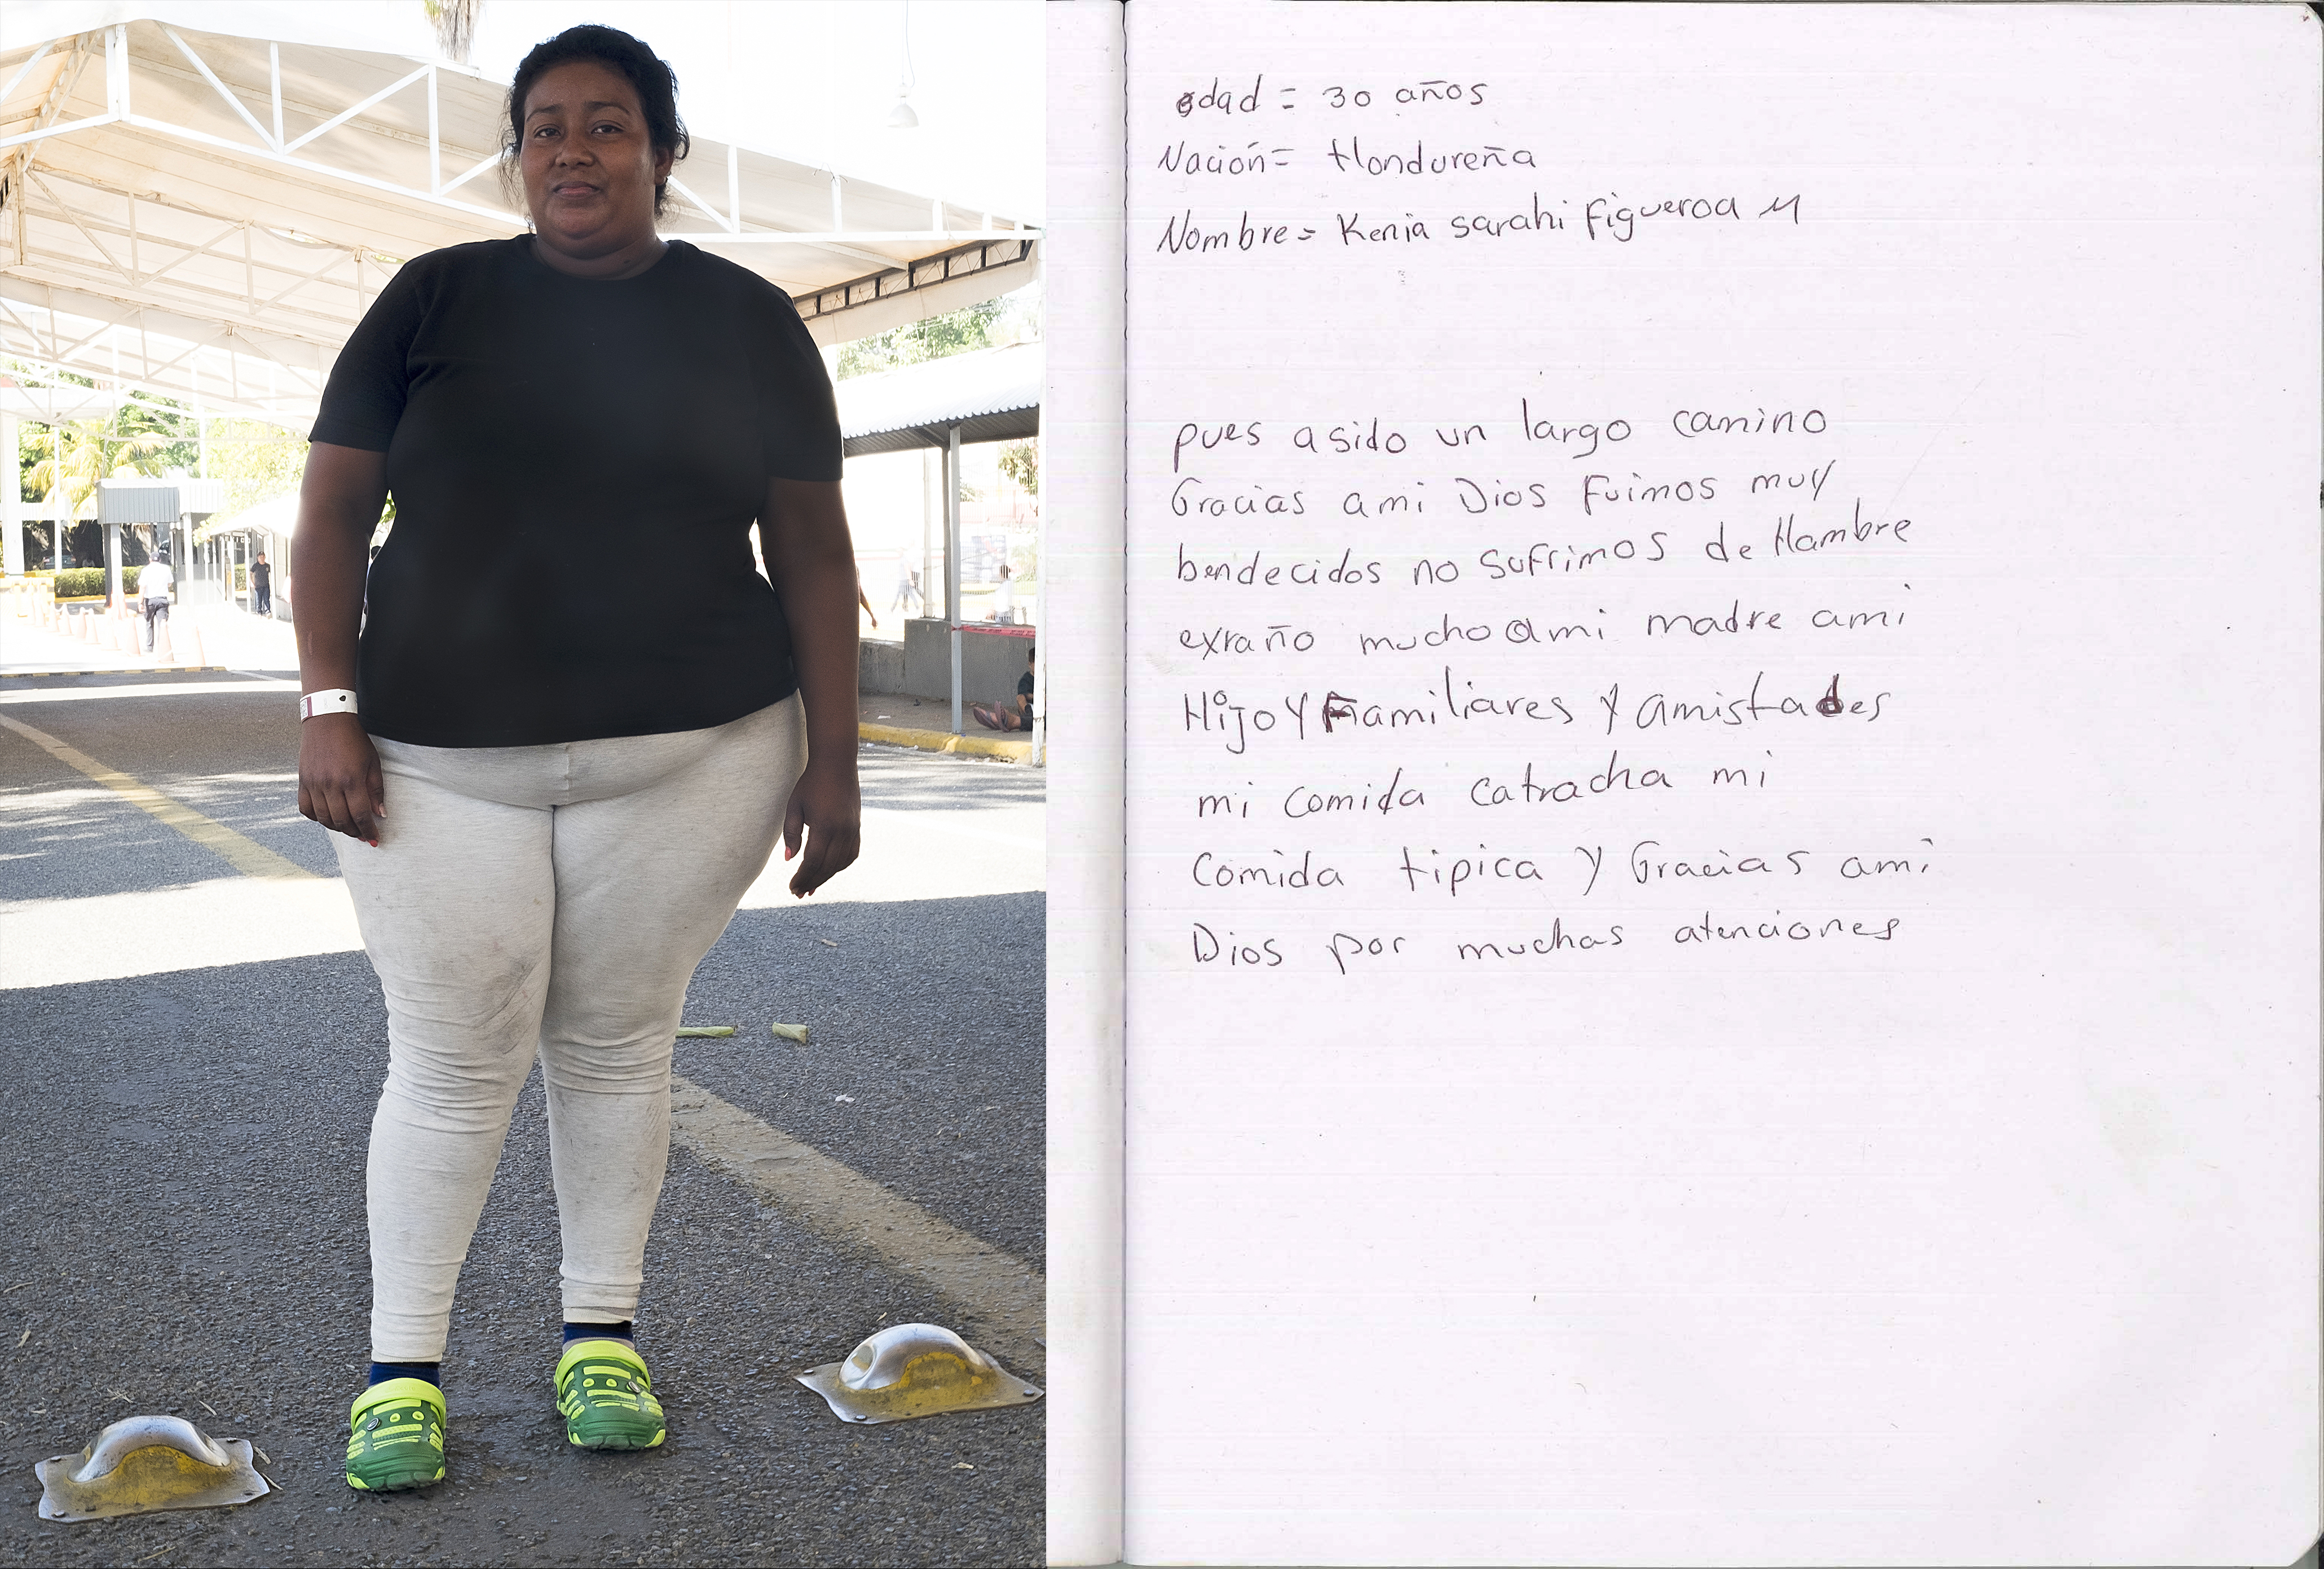 edad = 30 años
Nación = Hondureña
Nombre = Kenia sarahi Figueroa M
pues a sido un largo camino
Gracias ami Dios Fuimos muy
bendecidos no sufrimos de Hambre
exraño mucho a mi madre ami
Hijo y Familiares y amistades
mi comida catracha mi
comida tipica y Gracias ami
Dios por muchas atenciones